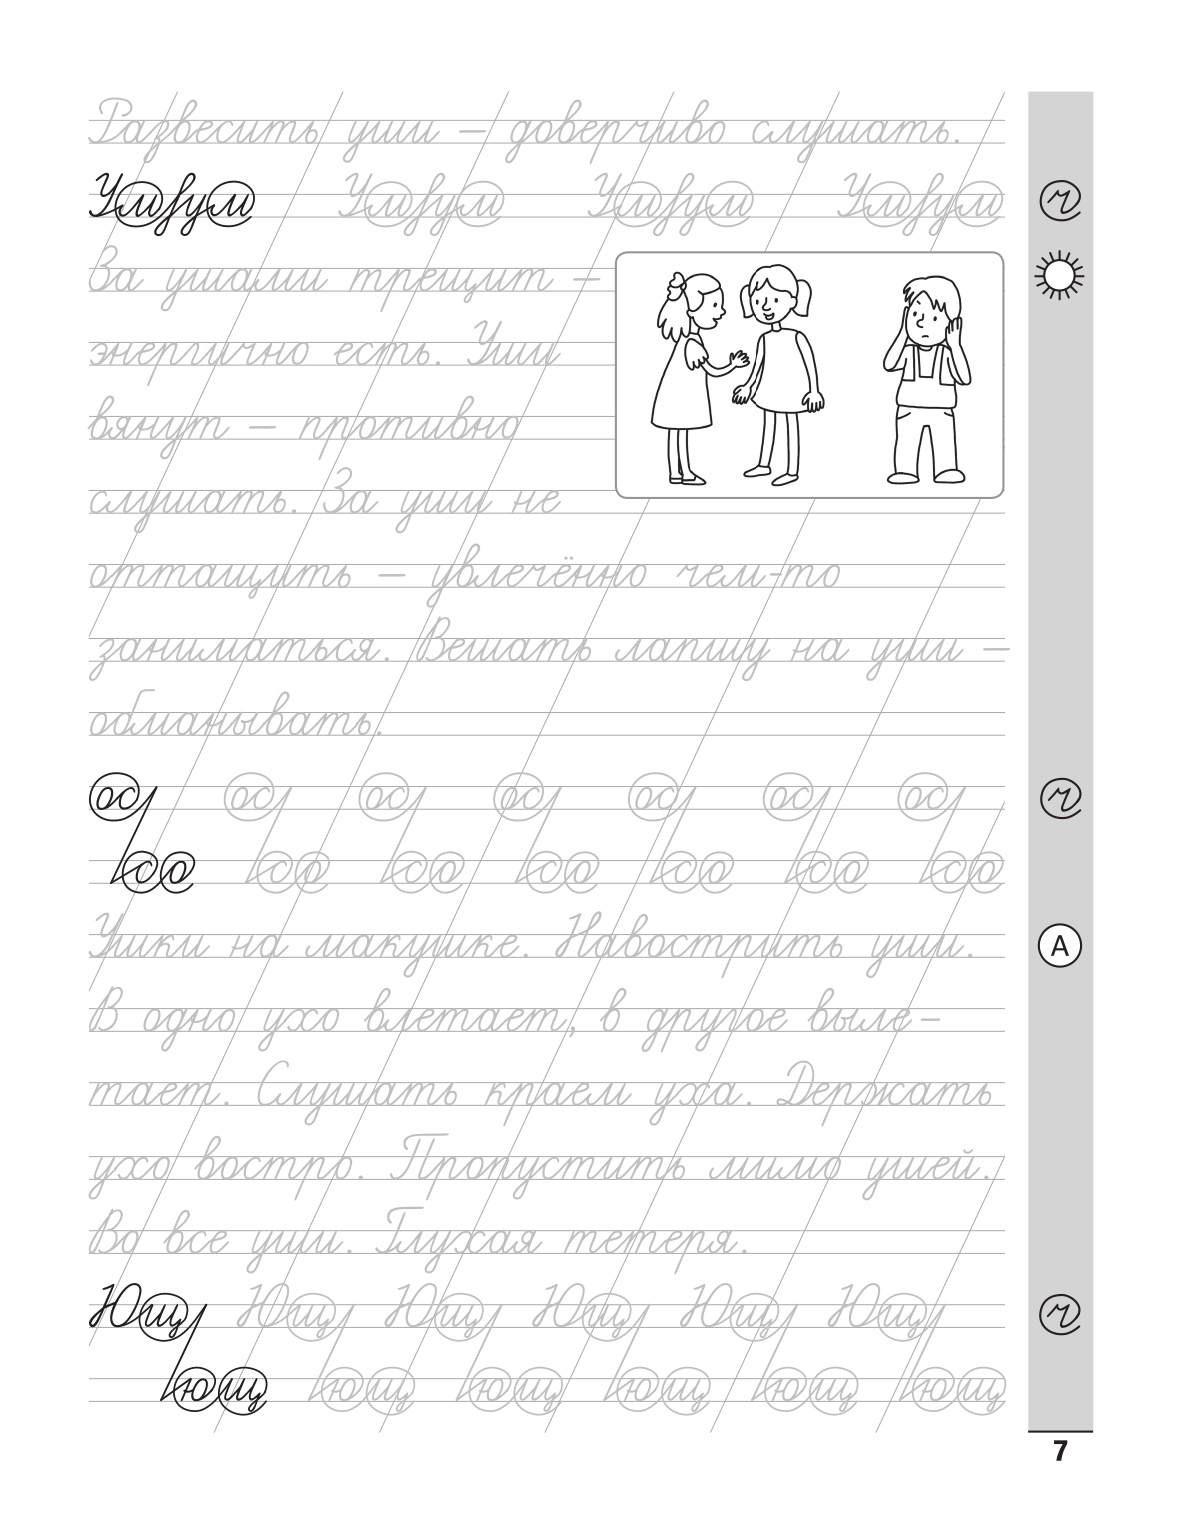 Развесить уши – доверчиво слушать.
Ум ум Ум ум Ум ум Ум ум
За ушами трещит –
энергично есть. Уши
вянут – противно
слушать. За уши не
оттащить – увлечённо чем-то
заниматься. Вешать лапшу на уши –
обманывать.
ос ос ос ос ос ос ос
со со со со со со со
Ушки на макушке. Навострить уши.
А
В одно ухо влетает, в другое выле-
тает. Слушать краем уха. Держать
ухо востро. Пропустить мимо ушей.
Во все уши. Глухая тетеря.
Ющ Ющ Ющ Ющ Ющ Ющ
ющ ющ ющ ющ ющ ющ
7